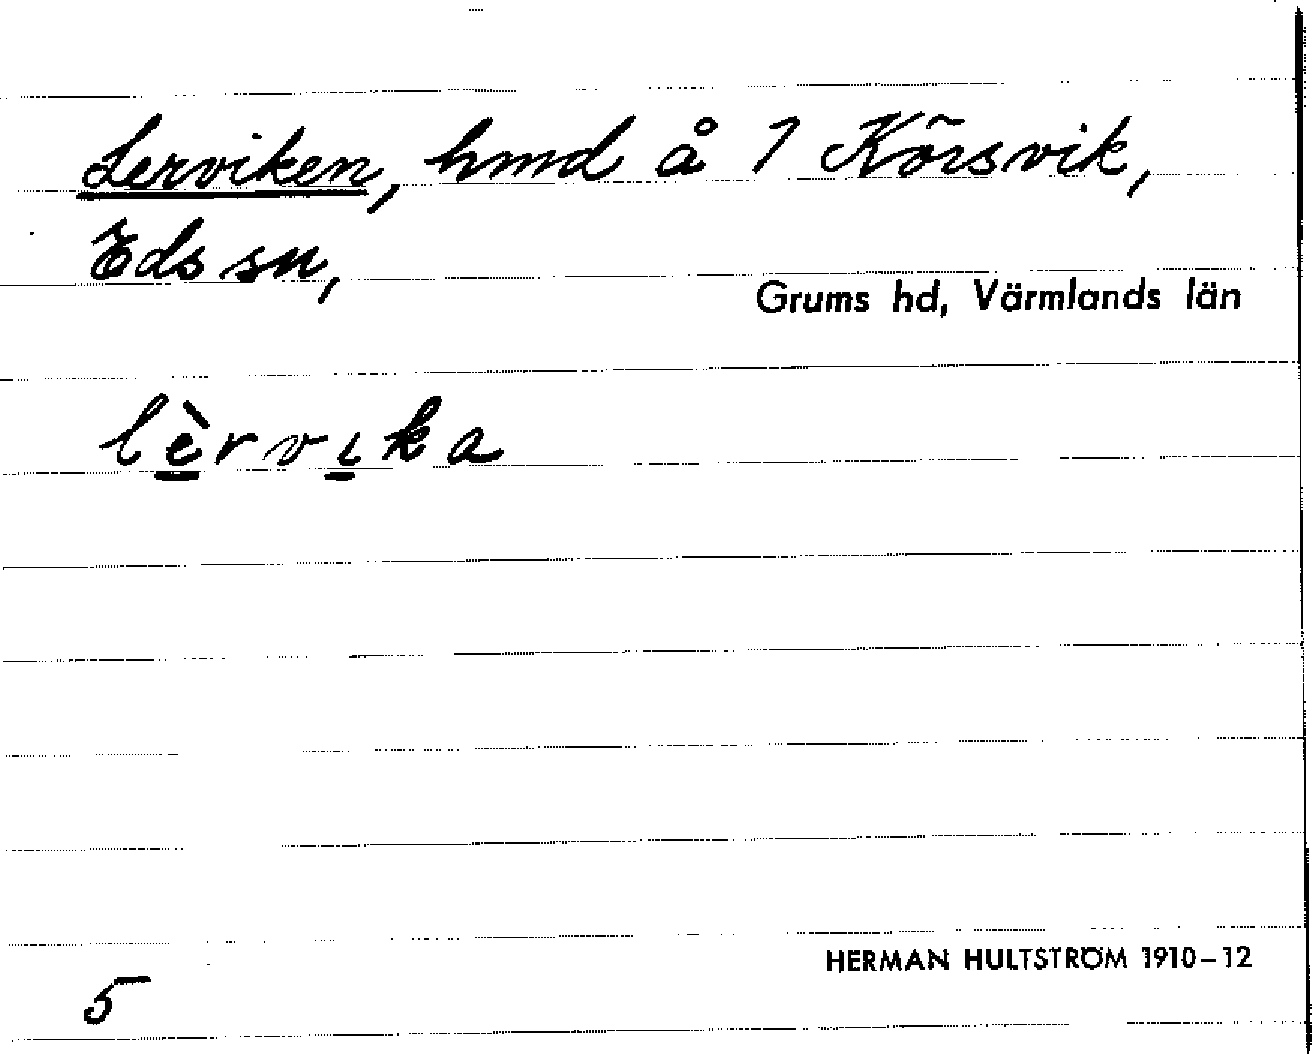 Lerviken, hmd å 1 Körsvik,
Eds sn,
Grums hd, Värmlands län
lèrvıka
5
HERMAN HULTSTRÖM 1910–12